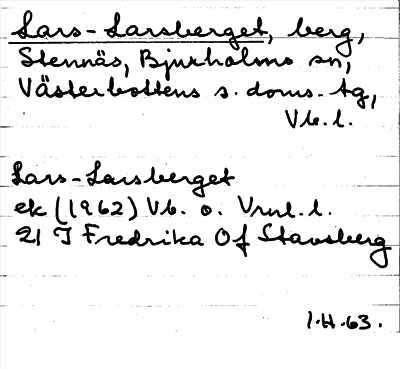 Lars-Larsberget, berg,
Stennäs, Bjurholms sn,
Västerbottens s. doms. tg,
Vb. l.
Lars-Larsberget
ek (1962) Vb. o. Vrnl. l.
21 I Fredrika Of Stavsberg
1.H.63.